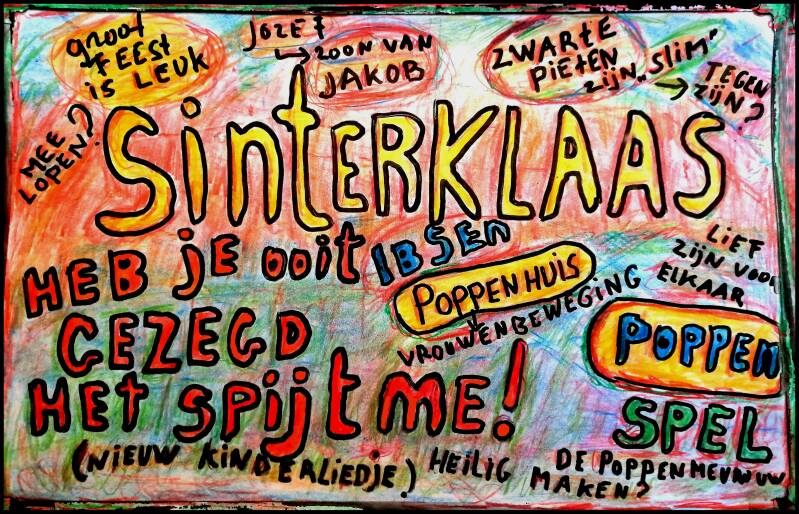 groot
FEEST
is LEUK
JOZEF
ZOON VAN
JAKOB
ZWARTE
PIETEN
zijn „SLIM”
TEGEN
ZIJN?
MEE
LOPEN?
SinTERKLAAS
HEB jE ooit
GEZEGD
HEt SPijt ME!
(NIEUW KINDERLIEDJE)
IBSEN
POPPENHUIS
VROUWENBEWEGING
LIEF
ZIJN VOOR
ELKAAR
POPPEN
SPEL
HEILIG
DE POPPENMEVROUW
MAKEN?